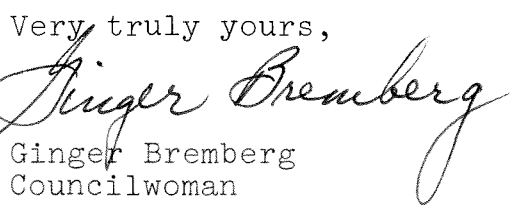 Very truly yours,
Ginger Bremberg
Ginger Bremberg
Councilwoman